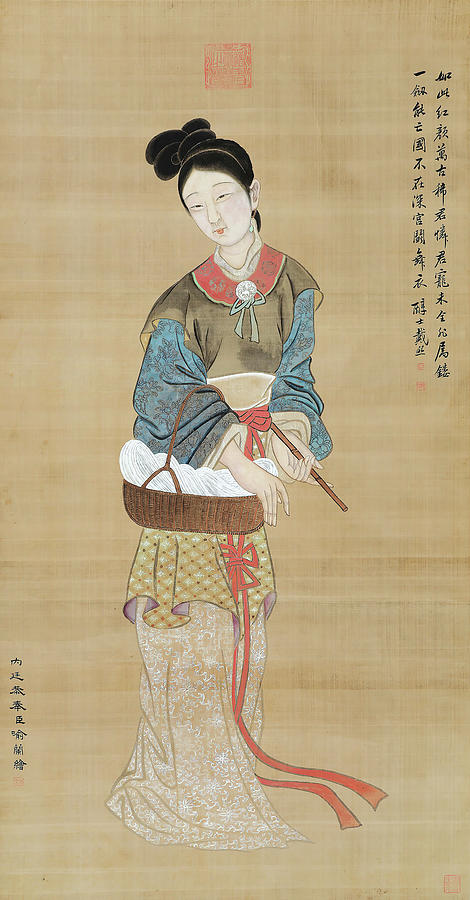 如此紅顏萬古稀君憐君寵未全非屬鏤
一劔能亡國不在深宮鬭舞衣 醇士戴熙
內廷恭奉臣喻蘭繪